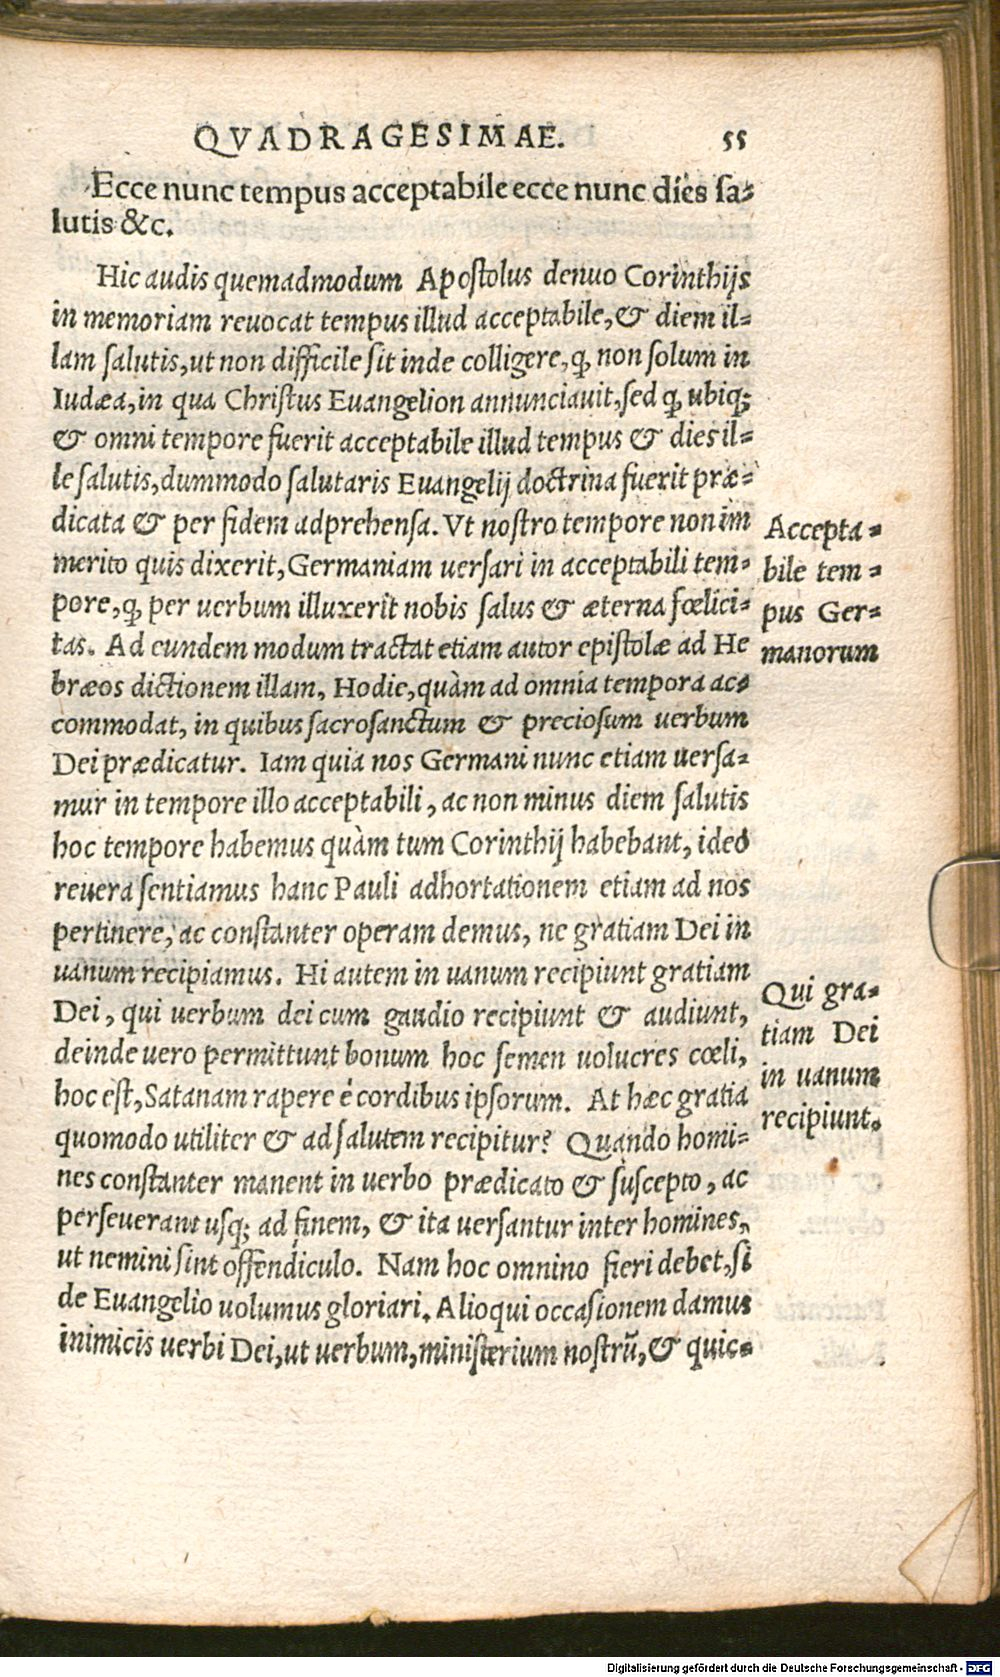 QVADRAGESIMAE. 55
Ecce nunc tempus acceptabile ecce nunc dies sa-
lutis &c.
Hic audis quemadmodum Apostolus denuo Corinthijs
in memoriam revocat tempus illud acceptabile, & diem il-
lam salutis, ut non difficile sit inde colligere, ꝙ non solum in
Iudæa, in qua Christus Euangelion annunciauit, sed ꝙ ubiq;
& omni tempore fuerit acceptabile illud tempus & dies il-
le salutis, dummodo salutaris Euangelij doctrina fuerit præ-
dicata & per fidem adprehensa. Vt nostro tempore non im
merito quis dixerit, Germaniam uersari in acceptabili tem-
pore, ꝙ per uerbum illuxerit nobis salus & æterna fœlici-
tas. Ad eundem modum tractat etiam autor epistolæ ad He
bræos dictionem illam, Hodie, quàm ad omnia tempora ac-
commodat, in quibus sacrosanctum & preciosum uerbum
Dei prædicatur. Iam quia nos Germani nunc etiam uersa-
mur in tempore illo acceptabili, ac non minus diem salutis
hoc tempore habemus quàm tum Corinthij habebant, ideo
reuera sentiamus hanc Pauli adhortationem etiam ad nos
pertinere, ac constanter operam demus, ne gratiam Dei in
uanum recipiamus. Hi autem in uanum recipiunt gratiam
Dei, qui uerbum dei cum gaudio recipiunt & audiunt,
deinde uero permittunt bonum hoc semen uolucres cœli,
hoc est, Satanam rapere è cordibus ipsorum. At hæc gratia
quomodo utiliter & ad salutem recipitur? Quando homi-
nes constanter manent in uerbo prædicato & suscepto, ac
perseuerant usq; ad finem, & ita uersantur inter homines,
ut nemini sint offendiculo. Nam hoc omnino fieri debet, si
de Euangelio uolumus gloriari. Alioqui occasionem damus
inimicis uerbi Dei, ut uerbum, ministerium nostrũ, & quic-
Accepta-
bile tem-
pus Ger-
manorum
Qui gra-
tiam Dei
in uanum
recipiunt.
Digitalisierung gefördert durch die Deutsche Forschungsgemeinschaft - DFG